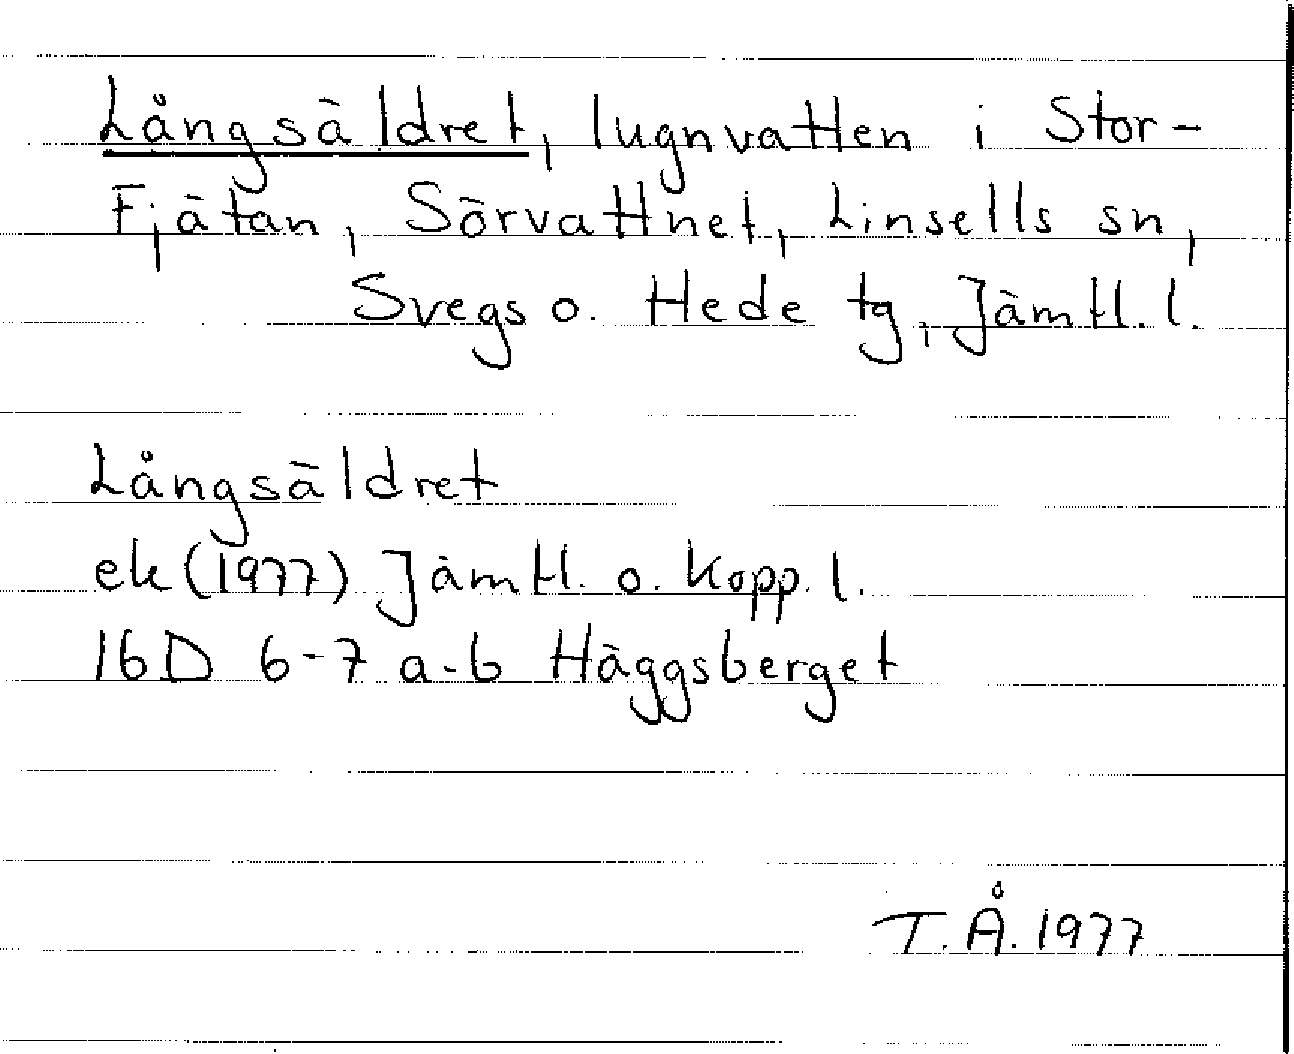 Långsäldret, lugnvatten i Stor-
Fjätan, Sörvattnet, Linsells sn,
Svegs o. Hede tg, Jämtl. l.
Långsäldret
ek (1977) Jämtl. o. Kopp. l.
16D 6-7 a-b Häggsberget
T.Å. 1977